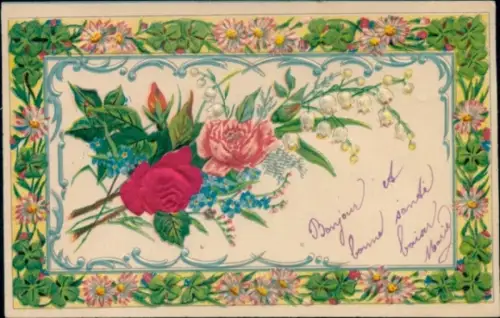 Bonjour et
bonne santé
baiser
Marie